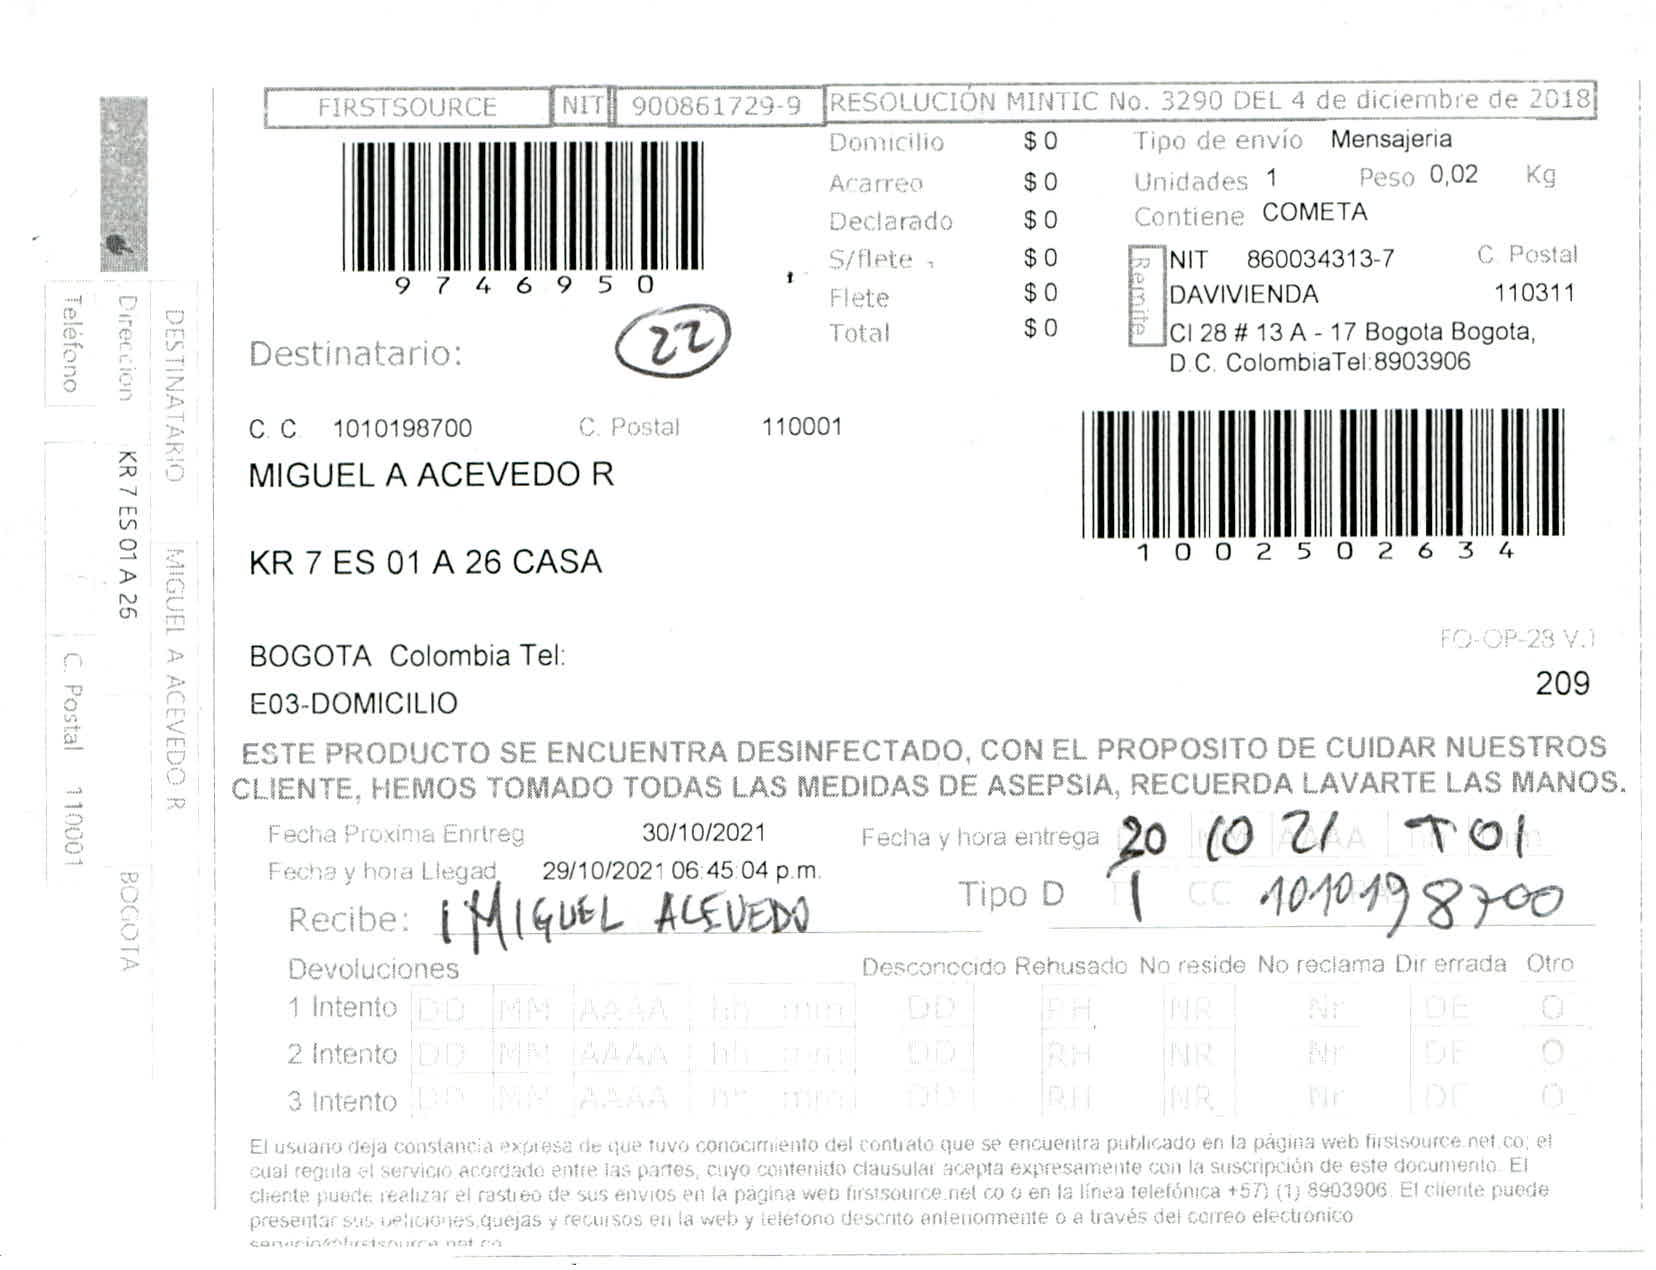 FIRSTSOURCE NIT 900861729-9 RESOLUCIÓN MINTIC No. 3290 DEL 4 de diciembre de 2018
9746950
Domicilio $ 0
Acarreo $ 0
Declarado $ 0
S/flete $ 0
Flete $ 0
Total $ 0
Tipo de envío Mensajeria
Unidades 1 Peso 0,02 Kg
Contiene COMETA
Remite
NIT 860034313-7 C. Postal
DAVIVIENDA 110311
Cl 28 # 13 A - 17 Bogota Bogota,
D.C. ColombiaTel:8903906
22
Destinatario:
C. C. 1010198700 C. Postal 110001
MIGUEL A ACEVEDO R
1002502634
KR 7 ES 01 A 26 CASA
BOGOTA Colombia Tel:
FO-OP-28 V.1
209
E03-DOMICILIO
ESTE PRODUCTO SE ENCUENTRA DESINFECTADO, CON EL PROPOSITO DE CUIDAR NUESTROS
CLIENTE, HEMOS TOMADO TODAS LAS MEDIDAS DE ASEPSIA, RECUERDA LAVARTE LAS MANOS.
Fecha Proxima Enrtreg 30/10/2021 Fecha y hora entrega 20 10 21 T01
Fecha y hora Llegad 29/10/2021 06:45:04 p.m.
Tipo D CC 1010198700
Recibe: MIGUEL ACEVEDO
Devoluciones Desconocido Rehusado No reside No reclama Dir errada Otro
1 Intento DD MM AAAA hh mm DD RH NR Nr DE O
2 Intento DD MM AAAA hh mm DD RH NR Nr DE O
3 Intento DD MM AAAA hh mm DD RH NR Nr DE O
El usuario deja constancia expresa de que tuvo conocimiento del contrato que se encuentra publicado en la página web firstsource.net.co; el
cual regula el servicio acordado entre las partes, cuyo contenido clausular acepta expresamente con la suscripción de este documento. El
cliente puede realizar el rastreo de sus envios en la página web firstsource.net.co o en la línea telefónica +57) (1) 8903906. El cliente puede
presentar sus peticiones,quejas y recursos en la web y telefono descrito anteriormente o a través del correo electronico
servicio@firstsource.net.co
DESTINATARIO MIGUEL A ACEVEDO R
Direccion KR 7 ES 01 A 26 BOGOTA
Teléfono C. Postal 110001